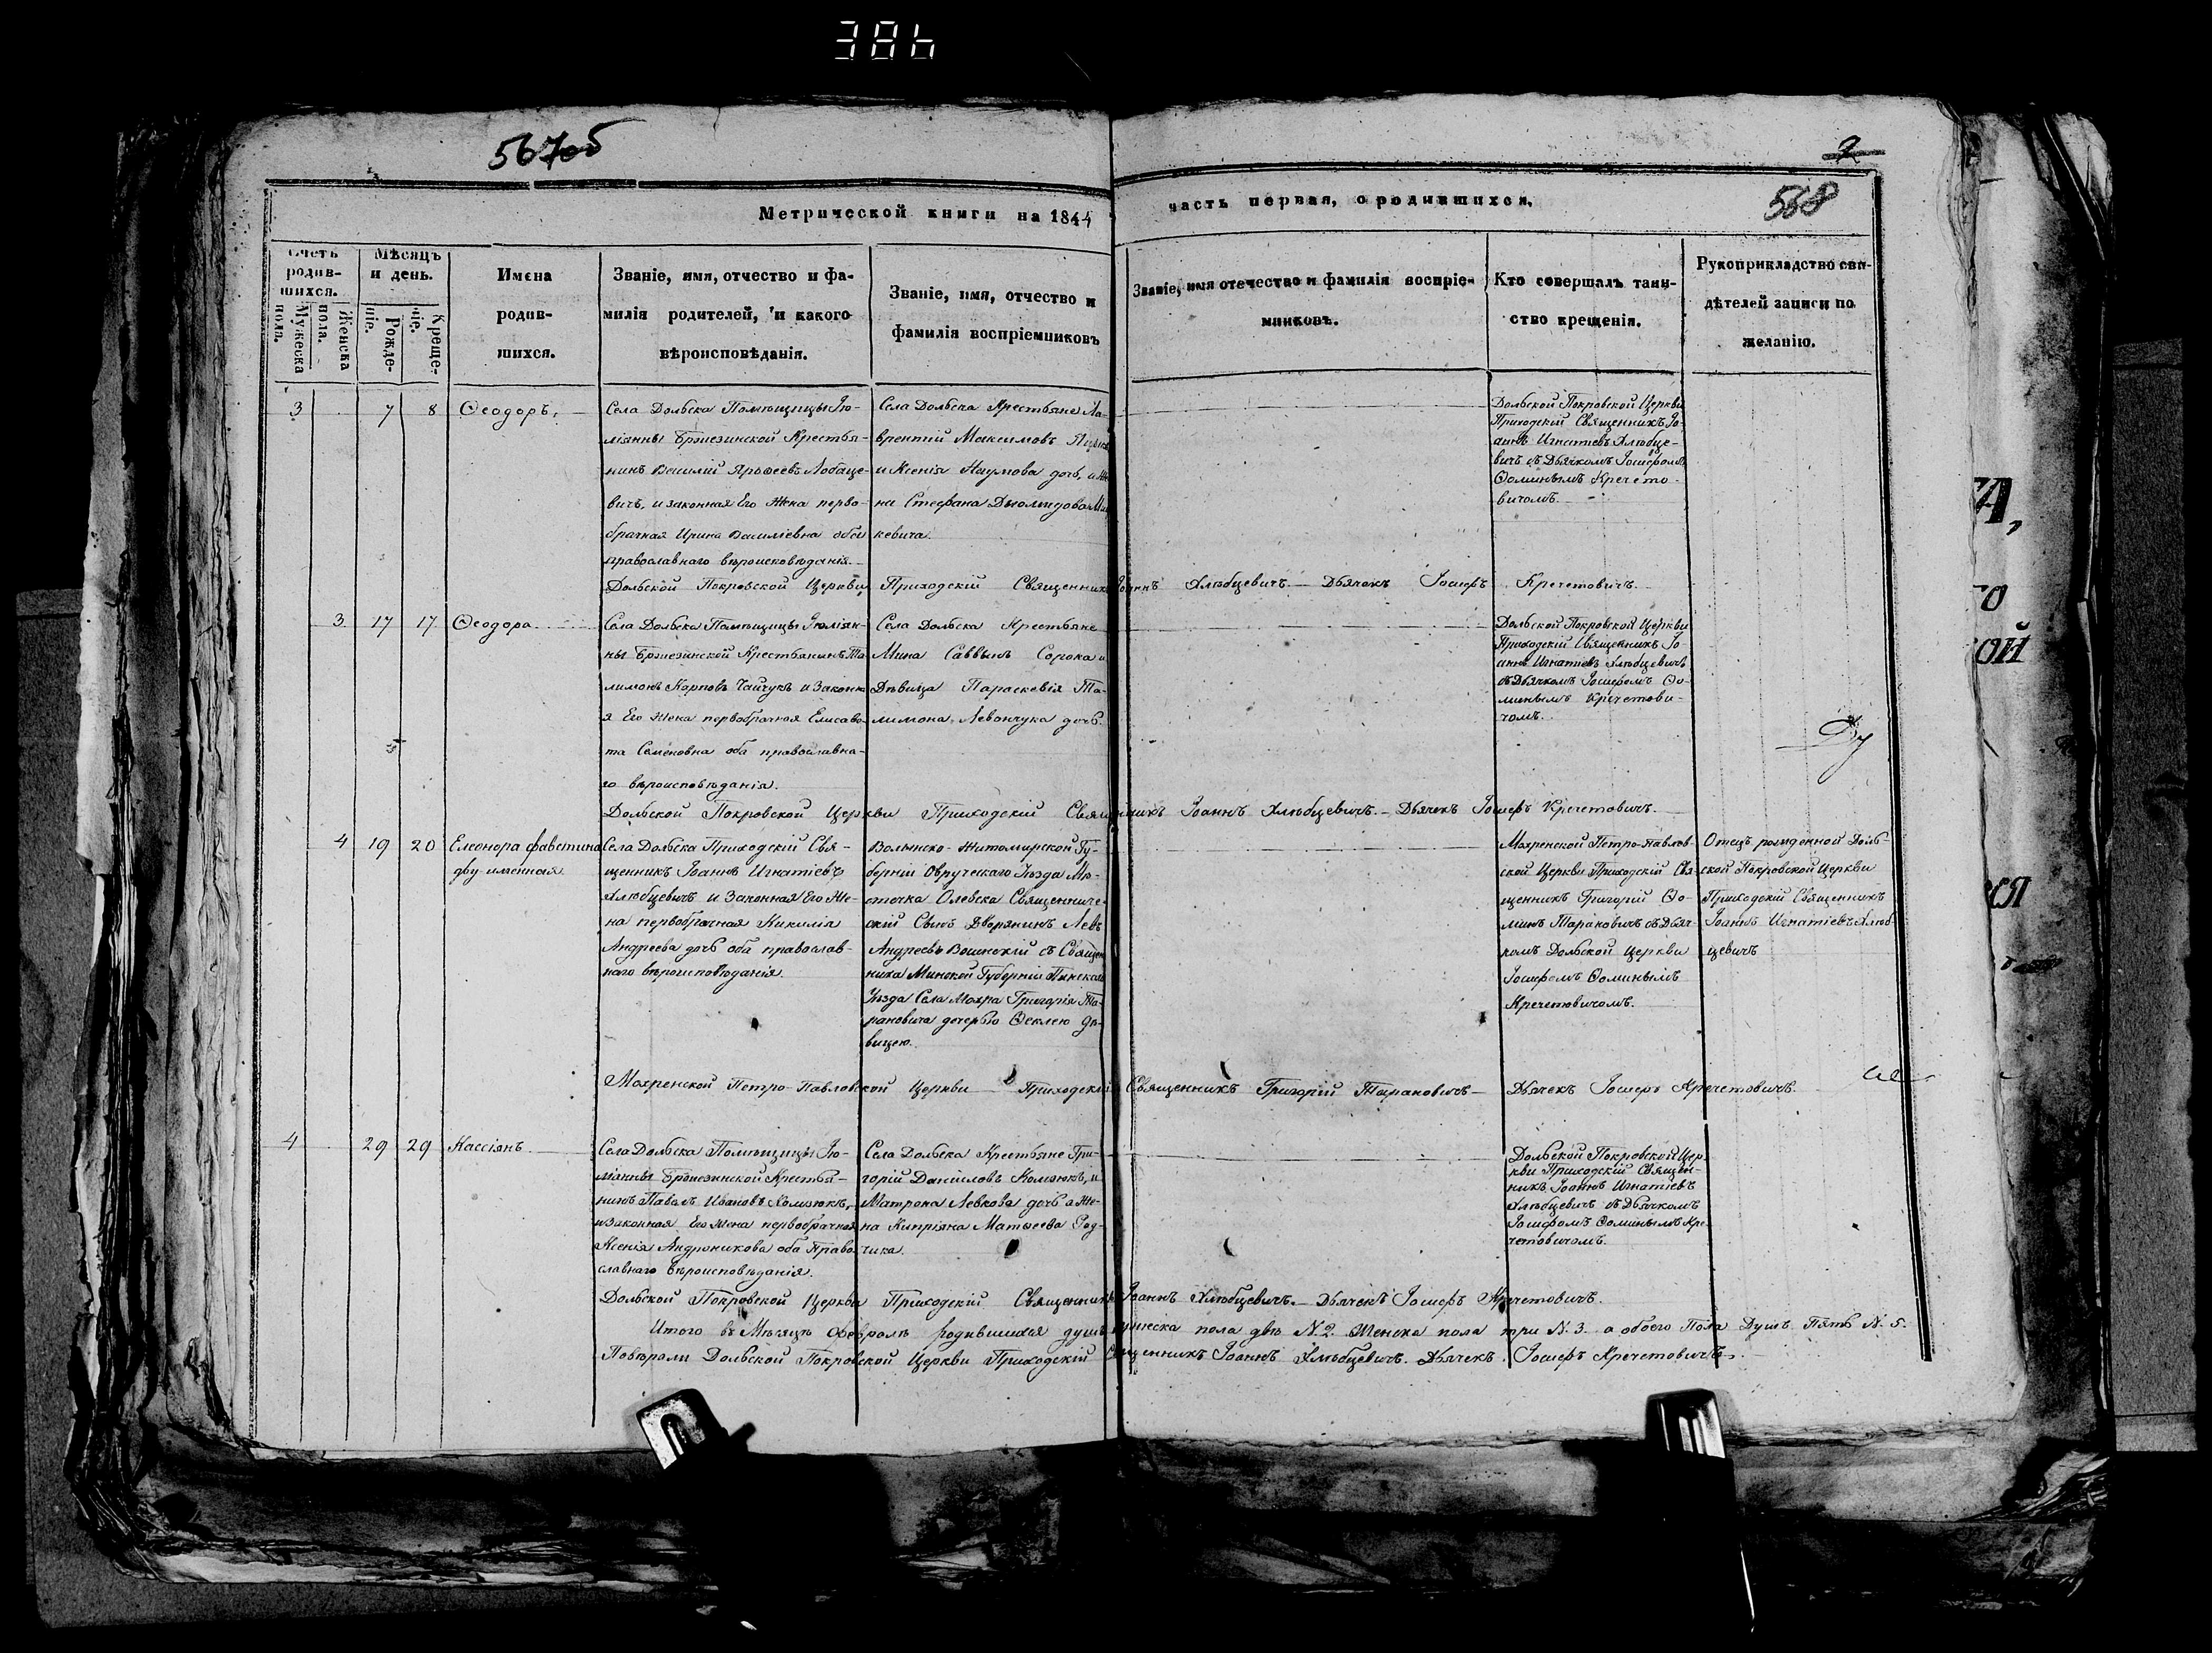 386
567об
2
568
Метрической книги на 1844
часть первая, о родившихся.
Счетъ родив-шихся.
Мужеска пола.
Женска пола.
Мѣсяцъ и день.
Рожде-ніе.
Креще-ніе.
Имена
родив-
шихся.
Званіе, имя, отчество и фа-
милія родителей, и какого
вѣроисповѣданія.
Званіе, имя, отчество и
фамилія воспріемниковъ
Званіе, имя отечество и фамилія воспріе-
мниковъ.
Кто совершалъ таин-
ство крещенія.
Рукоприкладство сви-
дѣтелей записи по
желанію.
3 7 8 Ѳеодоръ.
Села Дольска Помѣщицы Ію-
ліянны Бржезинской Крестья-
нинъ Василій Ярофеевъ Лобаце-
вичъ, и законная Его Жена перво-
брачная Ирина Василіевна оба
православнаго вѣроисповѣданія.
Села Дольска Крестьяне Ла-
врентій Максимовъ
и Ксенія Наумова дочь, а Же
на Стефана Дюмидова Ми
кевича.
Дольской Покровской Церкви
Приходскій Священникъ Іо-
аннъ Игнатіевъ Хлѣбце-
вичъ съ Дьячкомъ Іосифомъ
Ѳоминымъ Кречето-
вичомъ.
Дольской Покровской Церкви Приходскій Священникъ Іоаннъ Хлѣбцевичъ. Дьячекъ Іосифъ Кречетовичъ.
3 17 17 Ѳеодора
Села Дольска Помѣщицы Іюліян-
ны Бржезинской Крестьянинъ Па
лимонъ Карповъ Чайчукъ и Законн
я Его Жена первобрачная Елисаве
та Семеновна оба православна-
го вѣроисповѣданія.
Села Дольска Крестьяне
Мина Саввинъ Сорока и
Дѣвица Параскевія Па-
лимона Левончука дочь.
Дольской Покровской Церкви
Приходскій Священникъ Іо-
аннъ Игнатіевъ Хлѣбцевичъ
съ Дьячкомъ Іосифомъ Ѳо-
минымъ Кречетови-
чомъ.
5
Ду
Дольской Покровской Церкви Приходскій Священникъ Іоаннъ Хлѣбцевичъ. Дьячекъ Іосифъ Кречетовичъ.
4 19 20 Елеонора фавстина
дву-именная
Села Дольска Приходскій Свя-
щенникъ Іоаннъ Игнатіевъ
Хлѣбцевичъ и Законная Его Же-
на первобрачная Кикилія
Андреева дочь оба православ-
наго вѣроисповѣданія.
Волынско-Житомирской Гу-
берніи Овруческаго Уѣзда Мѣ-
стечка Олевска Священниче-
скій Сынъ Дворянинъ Левъ
Андреевъ Вошнскій съ Священ
ника Минской Губерніи Пинскаго
Уѣзда Села Мохра Григорія Та-
рановича дочерью Ѳеклею дѣ-
вицею.
Мохренской Петро-Павлов-
ской Церкви Приходскій Свя-
щенникъ Григорій Ѳо-
минъ Тарановичъ съ Дьяч-
комъ Дольской Церкви
Іосифомъ Ѳоминымъ
Кречетовичомъ.
Отецъ рожденной Доль-
ской Покровской Церкви
Приходскій Священникъ
Іоаннъ Игнатіевъ Хлѣб-
цевичъ
Мохренской Петро-Павловской Церкви Приходскій Священникъ Григорій Тарановичъ Дьячекъ Іосифъ Кречетовичъ.
4 29 29 Кассіянъ
Села Дольска Помѣщицы Ію-
ліянны Бржезинской Крестья-
нинъ Павелъ Ивановъ Хомзюкъ,
и законная Его Жена первобрачная
Ксенія Андроникова оба Право
славнаго вѣроисповѣданія.
Села Дольска Крестьяне Гри-
горій Даниловъ Комзюкъ, и
Матрона Левкова дочь а Же-
на Кипріяна Матѳеева Род-
чика.
Дольской Покровской Цер
кви Приходскій Священ-
никъ Іоаннъ Игнатіевъ
Хлѣбцевичъ съ Дьячкомъ
Іосифомъ Ѳоминымъ Кре-
четовичомъ.
Дольской Покровской Церкви Приходскій Священникъ Іоаннъ Хлѣбцевичъ. Дьячекъ Іосифъ Кречетовичъ.
Итого въ Мѣсяцѣ Февралѣ родившихся душъ мужеска пола двѣ N. 2. Женска пола три N. 3. а обоего Пола Душъ Пять N. 5.
Повѣряли Дольской Покровской Церкви Приходскій Священникъ Іоаннъ Хлѣбцевичъ. Дьячекъ Іосифъ Кречетовичъ.